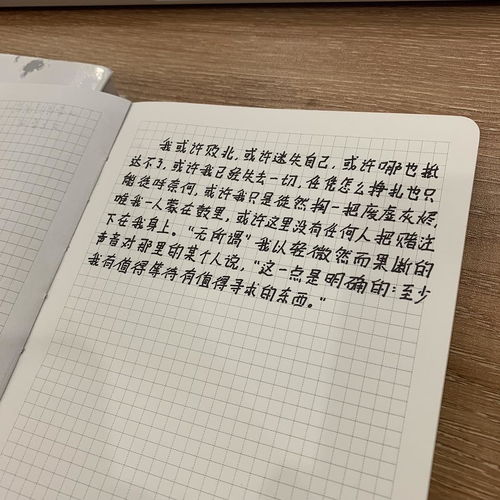 我或许败北，或许迷失自己，或许哪也抵
达不了，或许我已经失去一切，任凭怎么挣扎也只
能徒呼奈何，或许我只是徒然掬一把废墟灰烬，
唯我一人蒙在鼓里，或许这里没有任何人把赌注
下在我身上。“无所谓”我以轻微然而果断的
声音对那里的某个人说，“这一点是明确的：至少
我有值得等待有值得寻求的东西。”